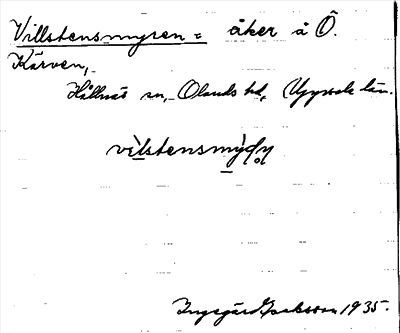 Villstensmyren = åker å Ö.
Kärven,
Hållnäs sn, Olands hd, Uppsala län.
vilstensmýɽn
Ingegärd Isaksson 1935.